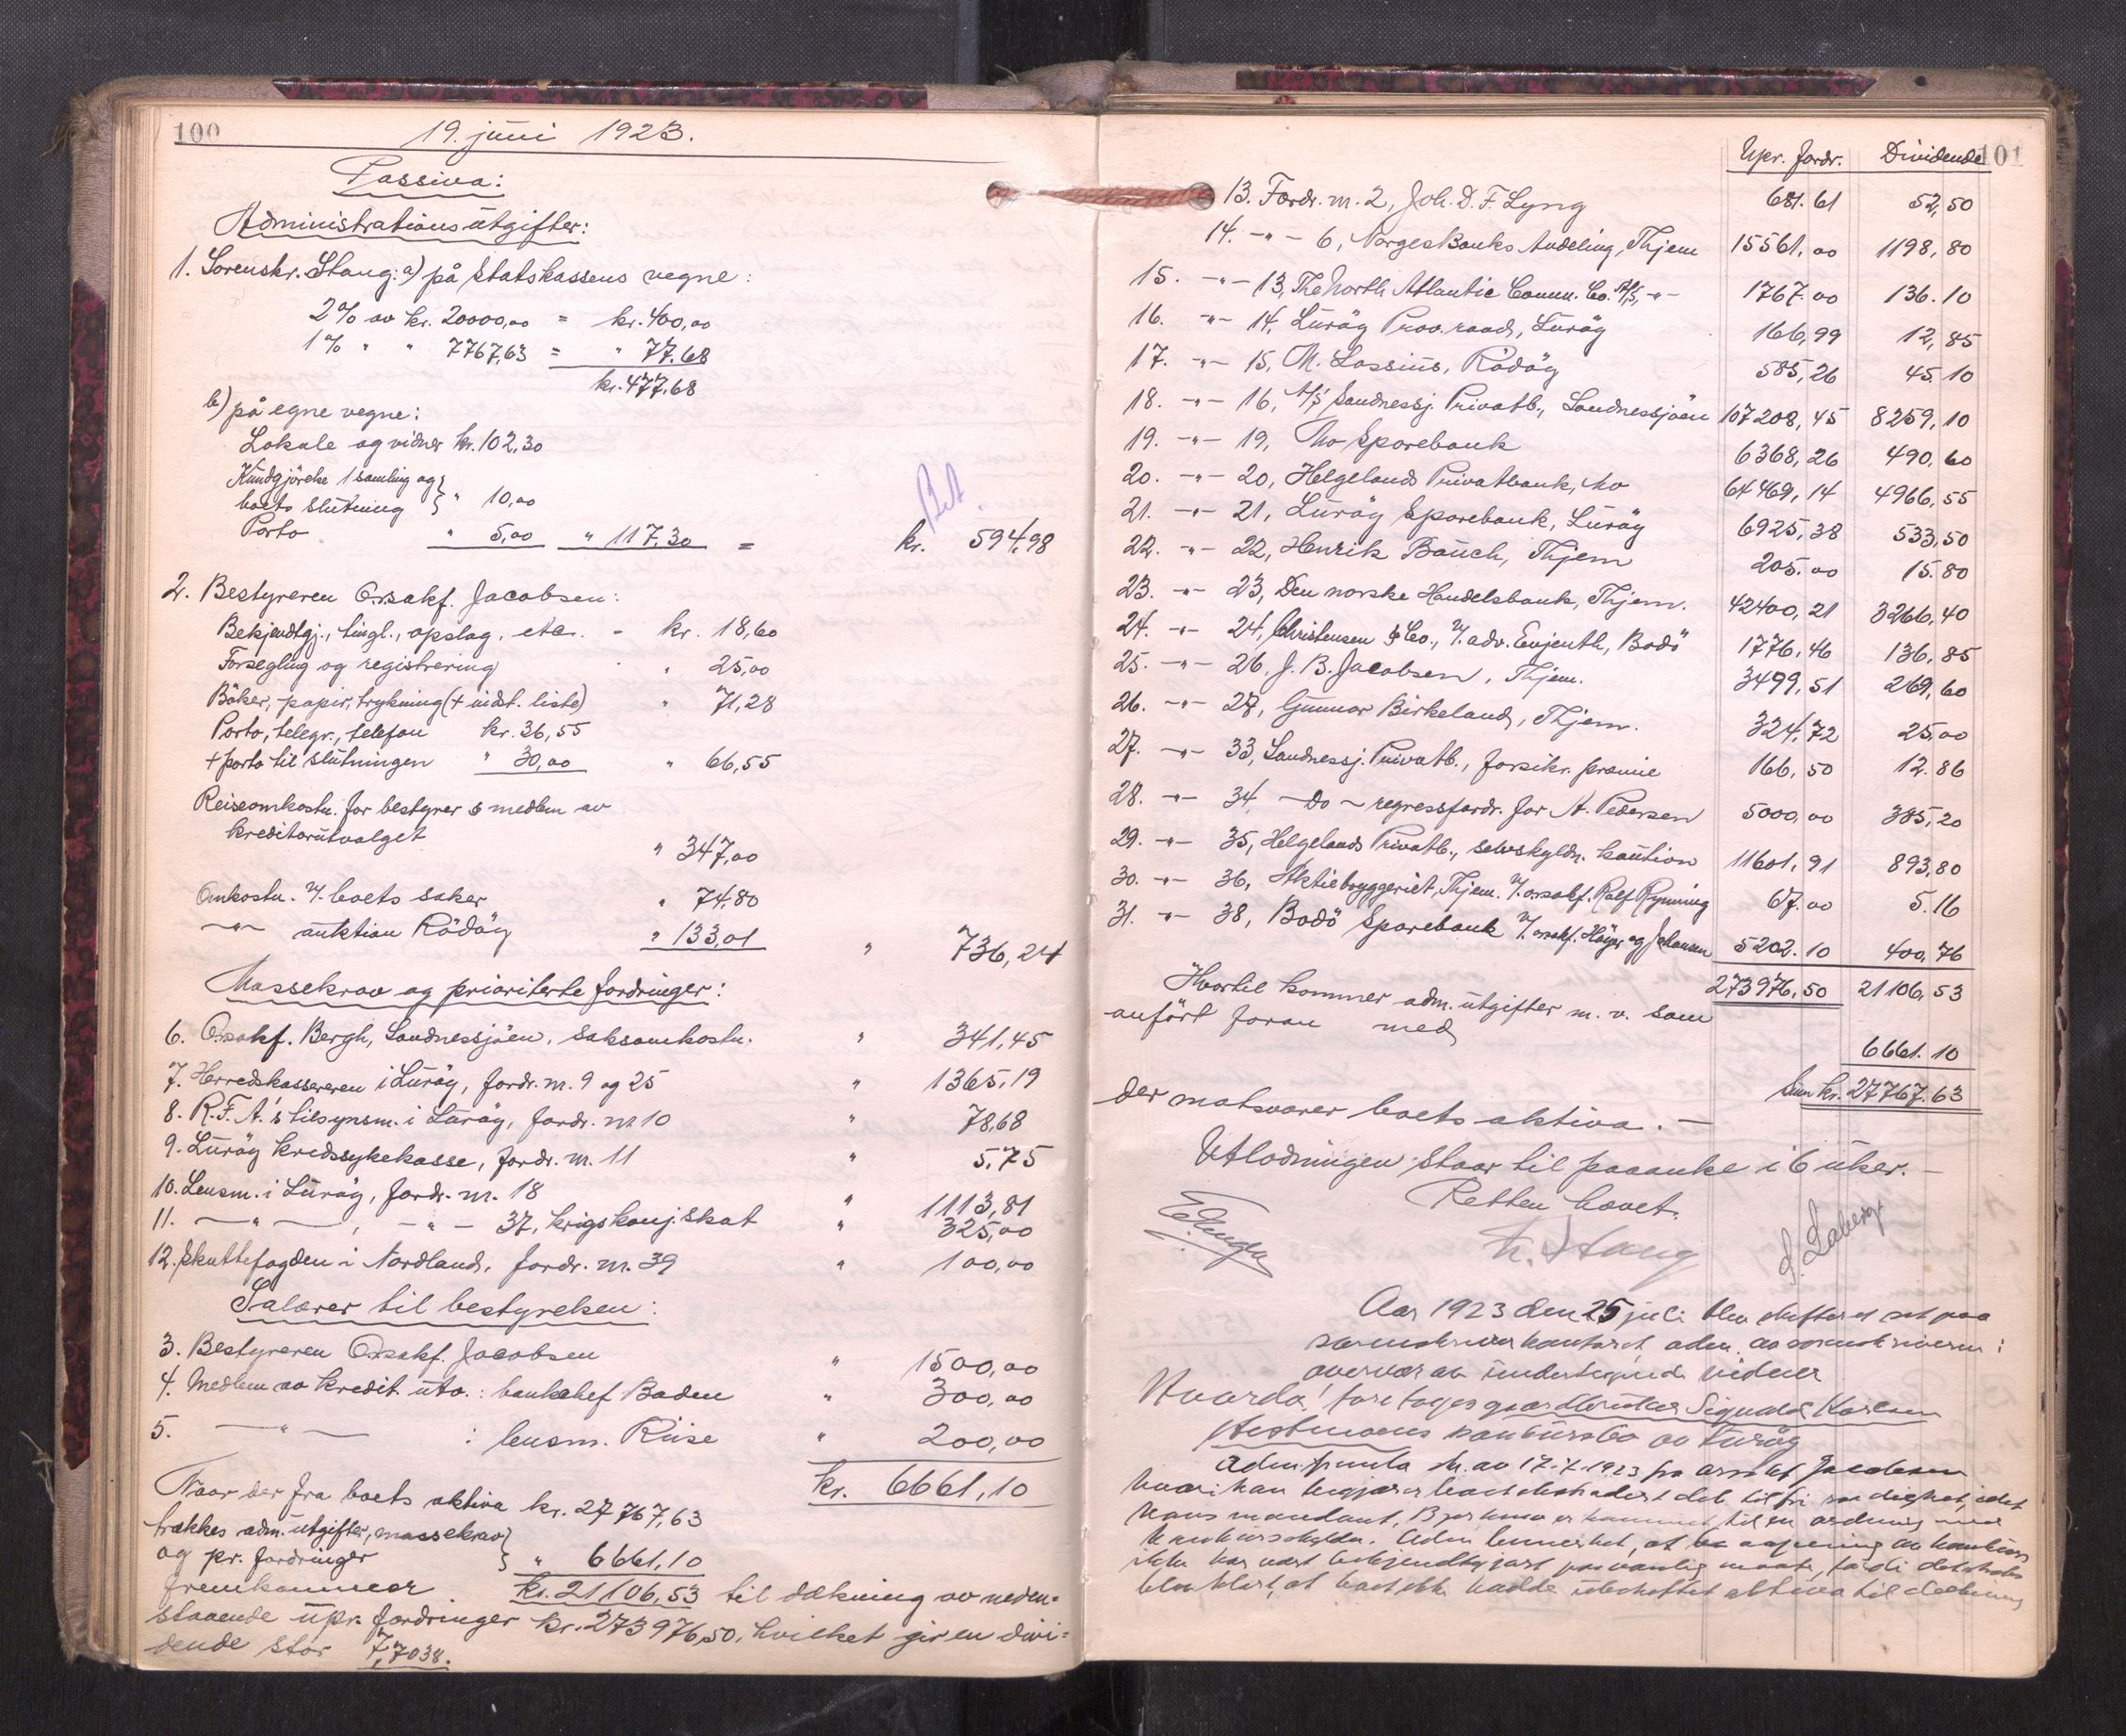 100
19. juni 1923.
Passiva:
Administrationsutgifter:
1. Sorenskr. Stang: a) på Statskassens vegne:
2% av kr. 20000,00 = kr. 400,00
1% " " 7767,63 = " 77.68
kr. 477.68
b) på egne vegne:
Lokale og vidner kr. 102,30
Kundgjörelse 1 samling og
boets slutning } " 10,00
Porto " 5,00 " 117,30 = kr. 594,98
Bet.
2. Bestyreren O.rsakf. Jacobsen:
Bekjendtgj., tingl., opslag, etc. - kr. 18,60
Forsegling og registrering " 25,00
Böker, papir, trykning (+ indst. liste) " 71,28
Porto, telegr., telefon kr. 36,55
+ porto til slutningen " 30,00 " 66,55
Reiseomkostn. for bestyrer & medlem av
kreditorutvalget " 347,00
Omkostn. v. boets saker " 74,80
—"— auktion Rödöy " 133,01 " 736,24
Massekrav og prioriterte fordringer:
6. O.rsakf. Bergh, Sandnessjöen, saksomkostn. " 341,45
7. Herredskassereren i Luröy, fordr. nr. 9 og 25 " 1365,19
8. R.F.A.'s tilsynsm. i Luröy, fordr. nr 10 " 78,68
9. Luröy kredssykekasse, fordr. nr. 11 " 5,75
10. Lensm. i Luröy, fordr. nr. 18 " 1113,81
11. —"—, —"— 37, krigskonj.skat " 325,00
12. Skattefogden i Nordland, fordr. nr. 39 " 100,00
Salærer til bestyrelsen:
3. Bestyreren O.rsakf. Jacobsen " 1500,00
4. Medlem av kredit. utv.: bankchef Baden " 300,00
5. —"— : lensm. Riise " 200,00
kr. 6661,10
Naar der fra boets aktiva kr. 27767,63
trækkes adm. utgifter, massekrav
og pr. fordringer } " 6661,10
fremkommer kr. 21106,53 til dækning av neden=
staaende upr. fordringer kr. 273976,50, hvilket gir en divi=
dende stor 7,7038.
101
Upr. fordr. Dividende
13. Fordr. nr. 2, Joh. D. F. Lyng 681.61 52,50
14. -"- 6, Norges Banks Avdeling, Thjem 15561,00 1198,80
15. -"- 13, The North Atlantic Comm. Co. A/S, -"- 1767.00 136.10
16. -"- 14, Luröy Prov.raad, Luröy 166,99 12,85
17. -"- 15, M. Lossius, Rödöy 585,26 45.10
18. -"- 16, A/S Sandnessj. Privatb., Sandnessjöen 107208,45 8259,10
19. -"- 19, Mo Sparebank 6368,26 490,60
20. -"- 20, Helgelands Privatbank, Mo 64469,14 4966,55
21. -"- 21, Luröy Sparebank, Luröy 6925,38 533,50
22. -"- 22, Henrik Bauch, Thjem 205.00 15.80
23. -"- 23, Den norske Handelsbank, Thjem. 42400,21 3266,40
24. -"- 24, Christensen & Co., v. adv. Evjenth, Bodö 1776,46 136,85
25. -"- 26, J. B. Jacobsen, Thjem. 3499,51 269,60
26. -"- 28, Gunnar Birkeland, Thjem. 324,72 25,00
27. -"- 33, Sandnessj. Privatb., forsikr. præmie 166,50 12.86
28. -"- 34 -Do- regressfordr. for A. Pedersen 5000,00 385,20
29. -"- 35, Helgelands Privatb., selvskyldn. kaution 11601,91 893,80
30. -"- 36, Aktiebryggeriet, Thjem. v. orsakf. Rolf Rynning 67.00 5.16
31. -"- 38, Bodö Sparebank v. orsakf. Höyer og Johansen 5202.10 400,76
273976,50 21106,53
Hvortil kommer adm. utgifter m. v. som
anfört foran med 6661.10
Sum kr. 27767.63
der motsvarer boets aktiva. —
Utlodningen staar til paaanke i 6 uker. —
Retten hævet.
N. Stang
Aar 1923 den 25 juli blev skifteret sat paa
sorenskriverkontoret adm. av sorenskriveren i
overvær av undertegnede vidner
Hvorda! foretoges gaardbruker Sigvald Karlsen
konkursbo av Luröy
Adm. fremla skr. av 17.7.1923 fra orsakf Jacobsen
hvori han begjærer boet tilbake til fri raadighet, idet
hans mandant, er kommet til en ordning med
Adm. bemerket, at
ikke har været bekjendtgjort paa vanlig maate, fordi det
blev klart, at boet ikke hadde aktiva til dækning